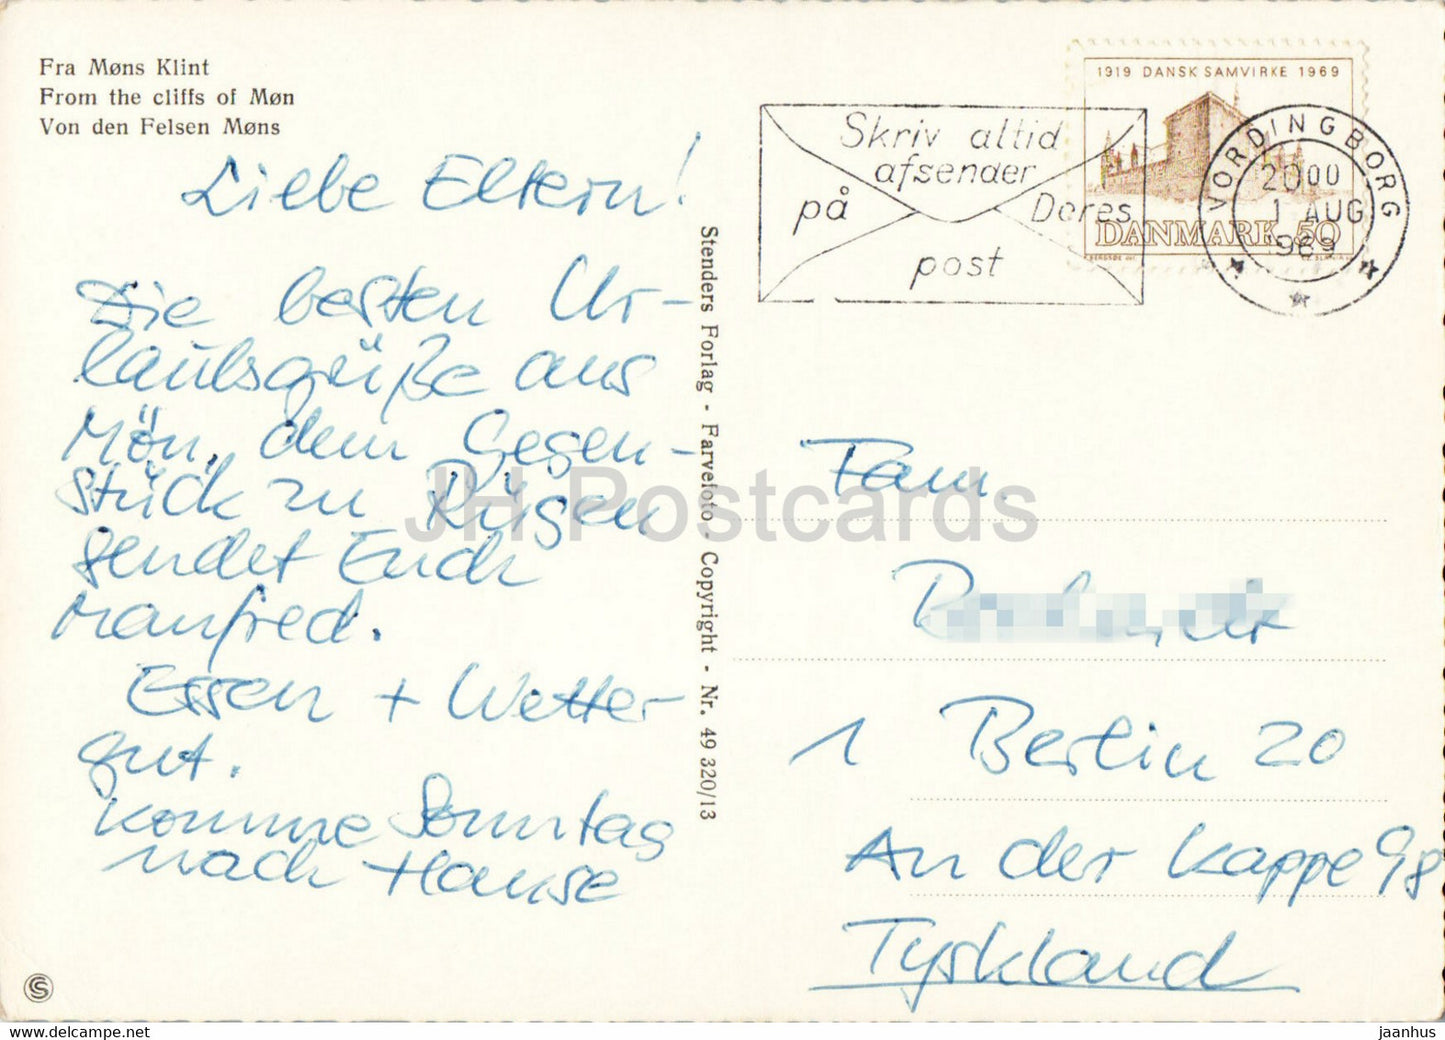 Fra Møns Klint
From the cliffs of Møn
Von den Felsen Møns
Liebe Eltern!
Die besten Ur-
laubsgrüße aus
Mön, dem Gegen-
stück zu Rügen
sendet Euch
Manfred.
Essen + Wetter
gut.
Komme Sonntag
nach Hause
Stenders Forlag - Farvefoto - Copyright - Nr. 49 320/13
Skriv altid
afsender
på Deres
post
1919 DANSK SAMVIRKE 1969
DANMARK 50
VORDINGBORG
2000
1 AUG
969
Fam.
1 Berlin 20
An der Kappe 98
Tyskland
JH Postcards
S
www.delcampe.net
jaanhus